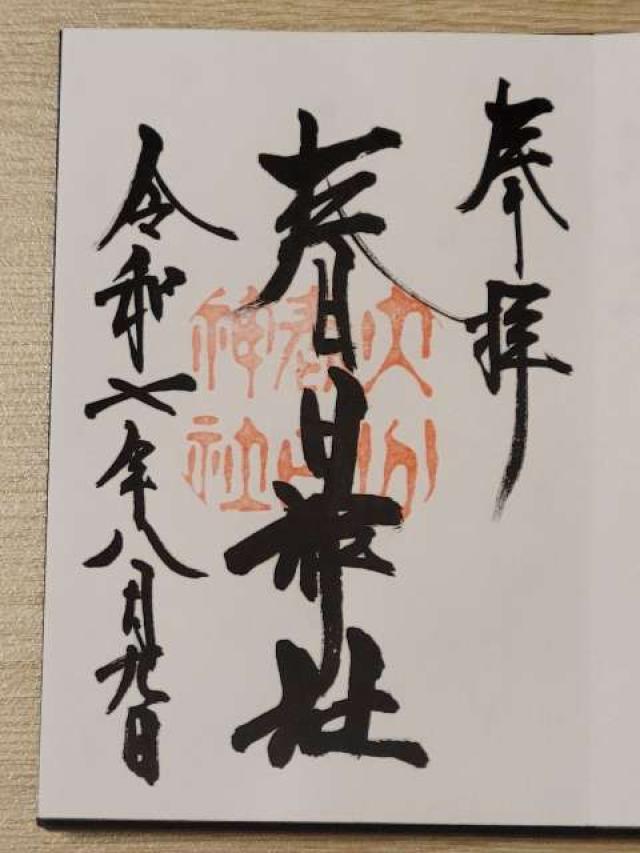 奉拝
春日神社
大分
春日
神社
令和七年八月九日